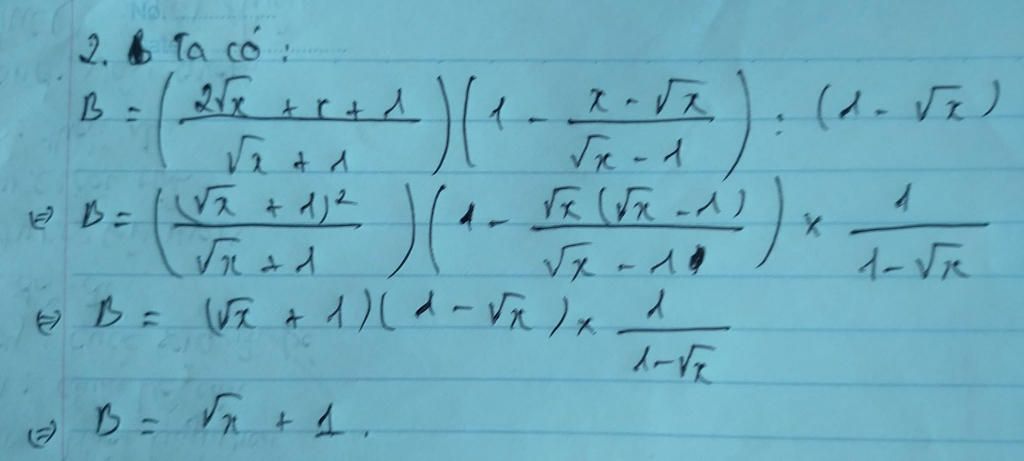 No.
2. Ta có:
B = ( (2√x + x + 1) / (√x + 1) ) ( 1 - (x - √x) / (√x - 1) ) : (1 - √x)
⇔ B = ( (√x + 1)² / (√x + 1) ) ( 1 - √x(√x - 1) / (√x - 1) ) × 1 / (1 - √x)
⇔ B = (√x + 1)(1 - √x) × 1 / (1 - √x)
⇔ B = √x + 1.